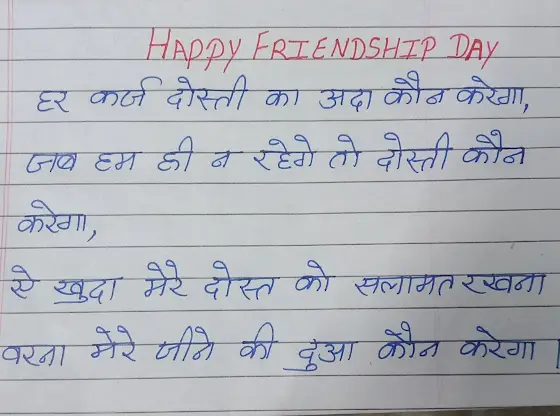 HAPPY FRIENDSHIP DAY
हर कर्ज दोस्ती का अदा कौन करेगा,
जब हम ही न रहेगे तो दोस्ती कौन
करेगा,
ऐ खुदा मेरे दोस्त को सलामत रखना
वरना मेरे जीने की दुआ कौन करेगा।